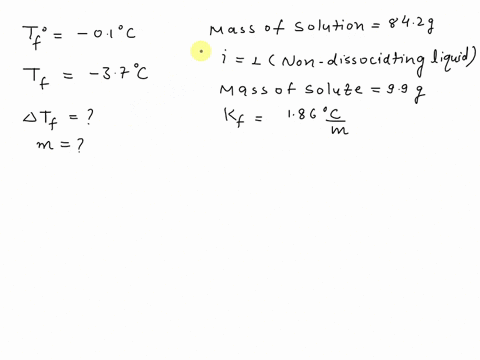 Tf° = -0.1°C
Tf = -3.7°C
ΔTf = ?
m = ?
Mass of Solution = 84.2g
i = 1 (Non-dissocidting liquid)
Mass of Soluze = 9.9 g
Kf = 1.86 °C/m